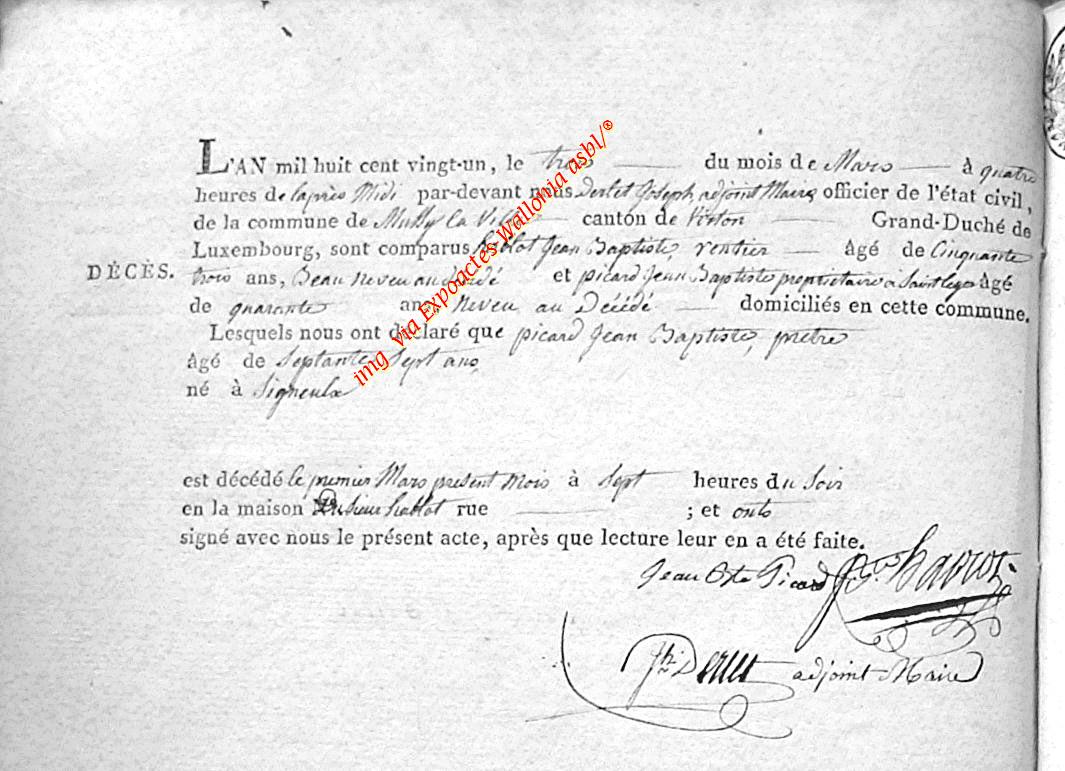 L'AN mil huit cent vingt-un, le trois du mois de Mars à quatre
heures de laprès Midi par-devant nous Derlet Joseph, adjoint Maire officier de l'état civil,
de la commune de Mussy la Ville cantón de Virton Grand-Duché de
Luxembourg, sont comparus hablot Jean Baptiste, rentier âgé de Cinquante
DÉCÈS. trois ans, Beau neveu au décédé et picard Jean Baptiste propriétaire a Saint leger âgé
de quarante ans Neveu au Décédé domiciliés en cette commune.
Lesquels nous ont déclaré que picard Jean Baptiste, pretre
âgé de Septante Sept ans,
né à Signeulx
est décédé le premier Mars présent mois à Sept heures du Soir
en la maison sieur hablot rue ; et onts
signé avec nous le présent acte, après que lecture leur en a été faite.
Jean Bte Picard
Jh Derlet adjoint Maire
img via Expoactes Wallonia asbl/®